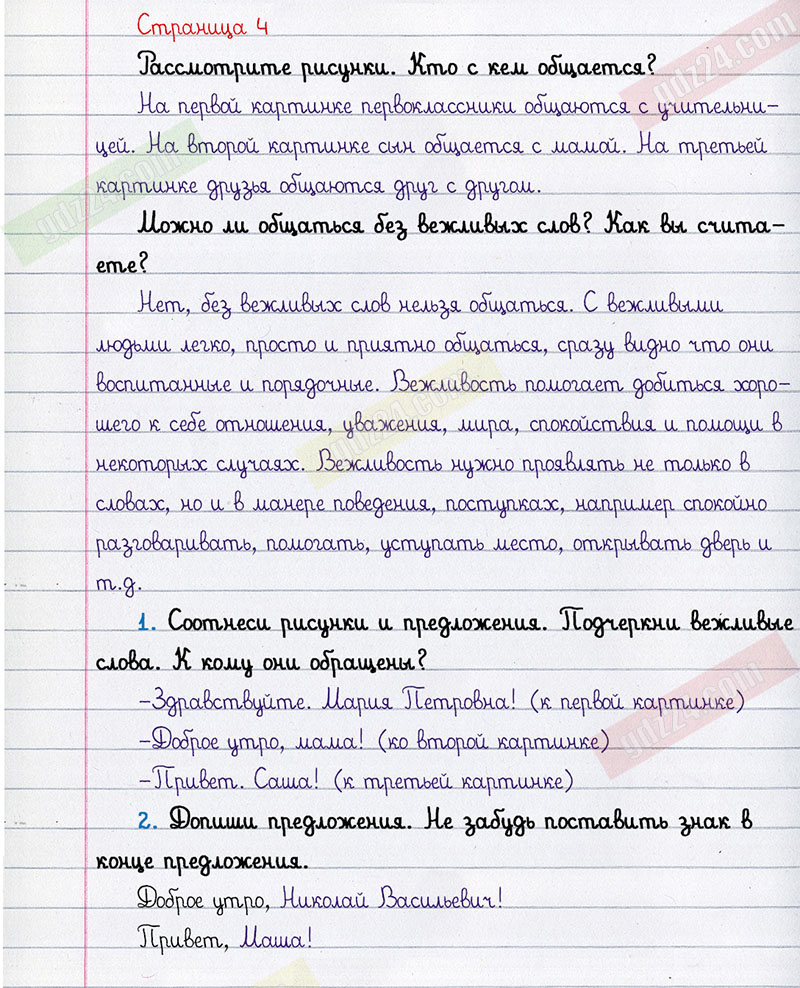 Страница 4
Рассмотрите рисунки. Кто с кем общается?
На первой картинке первоклассники общаются с учительни-
цей. На второй картинке сын общается с мамой. На третьей
картинке друзья общаются друг с другом.
Можно ли общаться без вежливых слов? Как вы счита-
ете?
Нет, без вежливых слов нельзя общаться. С вежливыми
людьми легко, просто и приятно общаться, сразу видно что они
воспитанные и порядочные. Вежливость помогает добиться хоро-
шего к себе отношения, уважения, мира, спокойствия и помощи в
некоторых случаях. Вежливость нужно проявлять не только в
словах, но и в манере поведения, поступках, например спокойно
разговаривать, помогать, уступать место, открывать дверь и
т.д.
1. Соотнеси рисунки и предложения. Подчеркни вежливые
слова. К кому они обращены?
-Здравствуйте. Мария Петровна! (к первой картинке)
-Доброе утро, мама! (ко второй картинке)
-Привет. Саша! (к третьей картинке)
2. Допиши предложения. Не забудь поставить знак в
конце предложения.
Доброе утро, Николай Васильевич!
Привет, Маша!
gdz24.com
gdz24.com
gdz24.com
gdz24.com